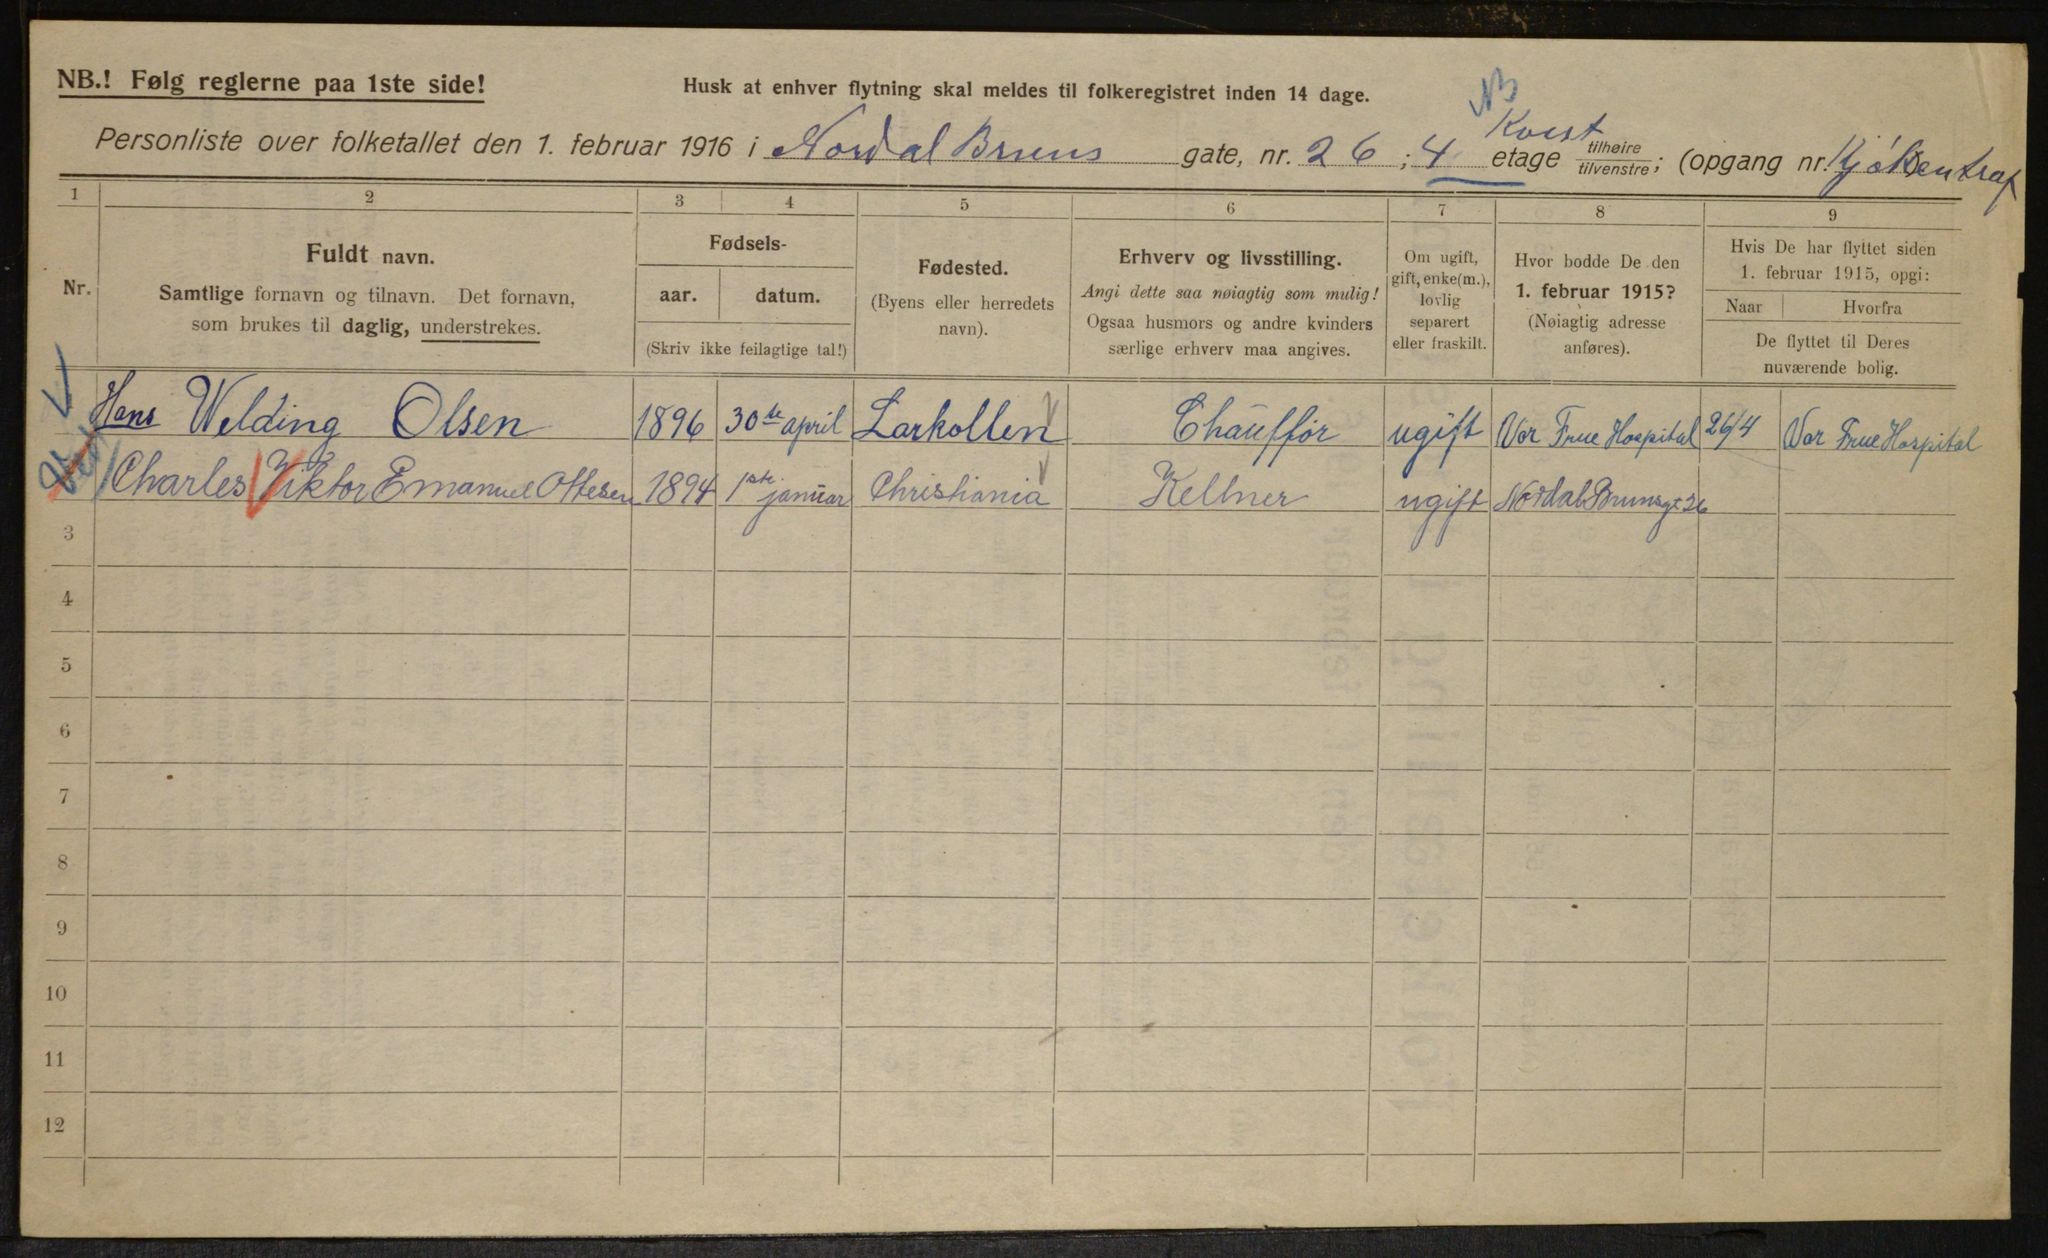 NB.! Følg reglerne paa 1ste side!
Husk at enhver flytning skal meldes til folkeregistret inden 14 dage.
NB
Kvist
Personliste over folketallet den 1. februar 1916 i Nordal Bruns gate, nr. 26; 4 etage tilhøire/tilvenstre; (opgang nr.
1 2 3 4 5 6 7 8 9
Nr.
Fuldt navn.
Samtlige fornavn og tilnavn. Det fornavn,
som brukes til daglig, understrekes.
Fødsels-
aar. datum.
(Skriv ikke feilagtige tal!)
Fødested.
(Byens eller herredets
navn).
Erhverv og livsstilling.
Angi dette saa nøiagtig som mulig!
Ogsaa husmors og andre kvinders
særlige erhverv maa angives.
Om ugift,
gift, enke(m.),
lovlig
separert
eller fraskilt.
Hvor bodde De den
1. februar 1915?
(Nøiagtig adresse
anføres).
Hvis De har flyttet siden
1. februar 1915, opgi:
Naar Hvorfra
De flyttet til Deres
nuværende bolig.
Hans Welding Olsen 1896 30te april Larkollen Chauffør ugift Vor Frue Hospital 26/4 Vor Frue Hospital
Charles Viktor Emanuel Ottesen 1894 1ste januar Christiania Kellner ugift Nordal Brunsgt 26
3
4
5
6
7
8
9
10
11
12